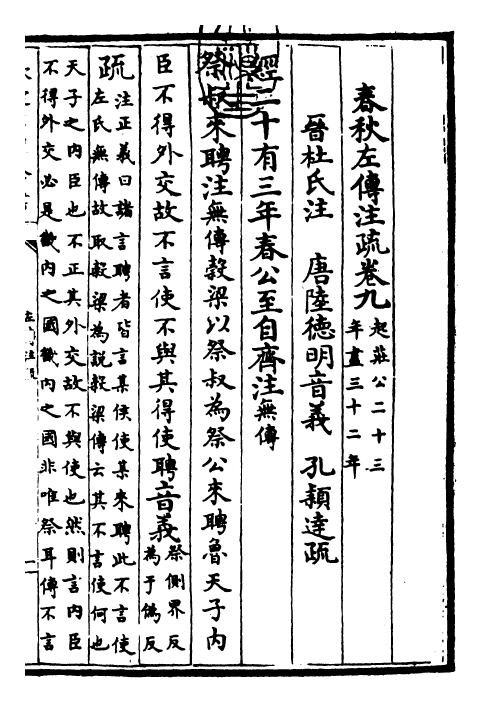 春秋左傳注疏卷九
起莊公二十三
年盡三十二年
晉杜氏注　唐陸德明音義　孔穎達疏
經二十有三年春公至自齊注無傳
祭叔來聘注無傳穀梁以祭叔為祭公來聘魯天子內
臣不得外交故不言使不與其得使聘音義
祭側界反
為于偽反
疏
注正義曰諸言聘者皆言某侯使某來聘此不言使
左氏無傳故取穀梁為說穀梁傳云其不言使何也
天子之內臣也不正其外交故不與使也然則言內臣
不得外交必是畿內之國畿內之國非唯祭耳傳不言